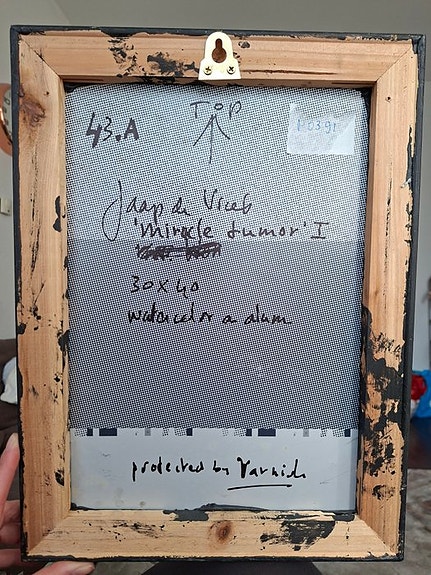 43.A
TOP
Jaap de Vries
'miracle tumor' I
30x40
watercolor on alum
protected by Varnish